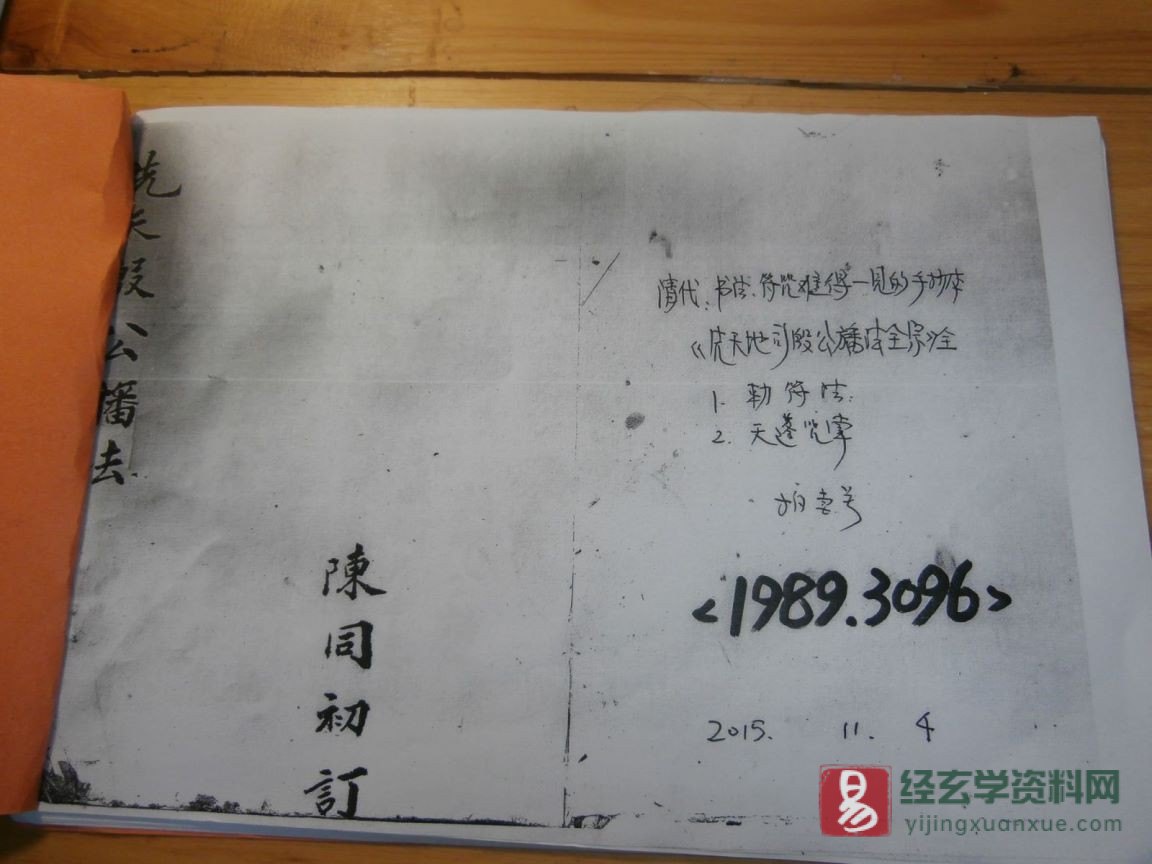 先天殷公旛法
陳同初訂
清代、书法、符咒难得一见的手抄本
《先天地司殷公旛法全宗》全
1. 勅符法.
2. 天蓬咒掌
拍卖号
<1989.3096>
2015. 11. 4
易
经玄学资料网
yijingxuanxue.com